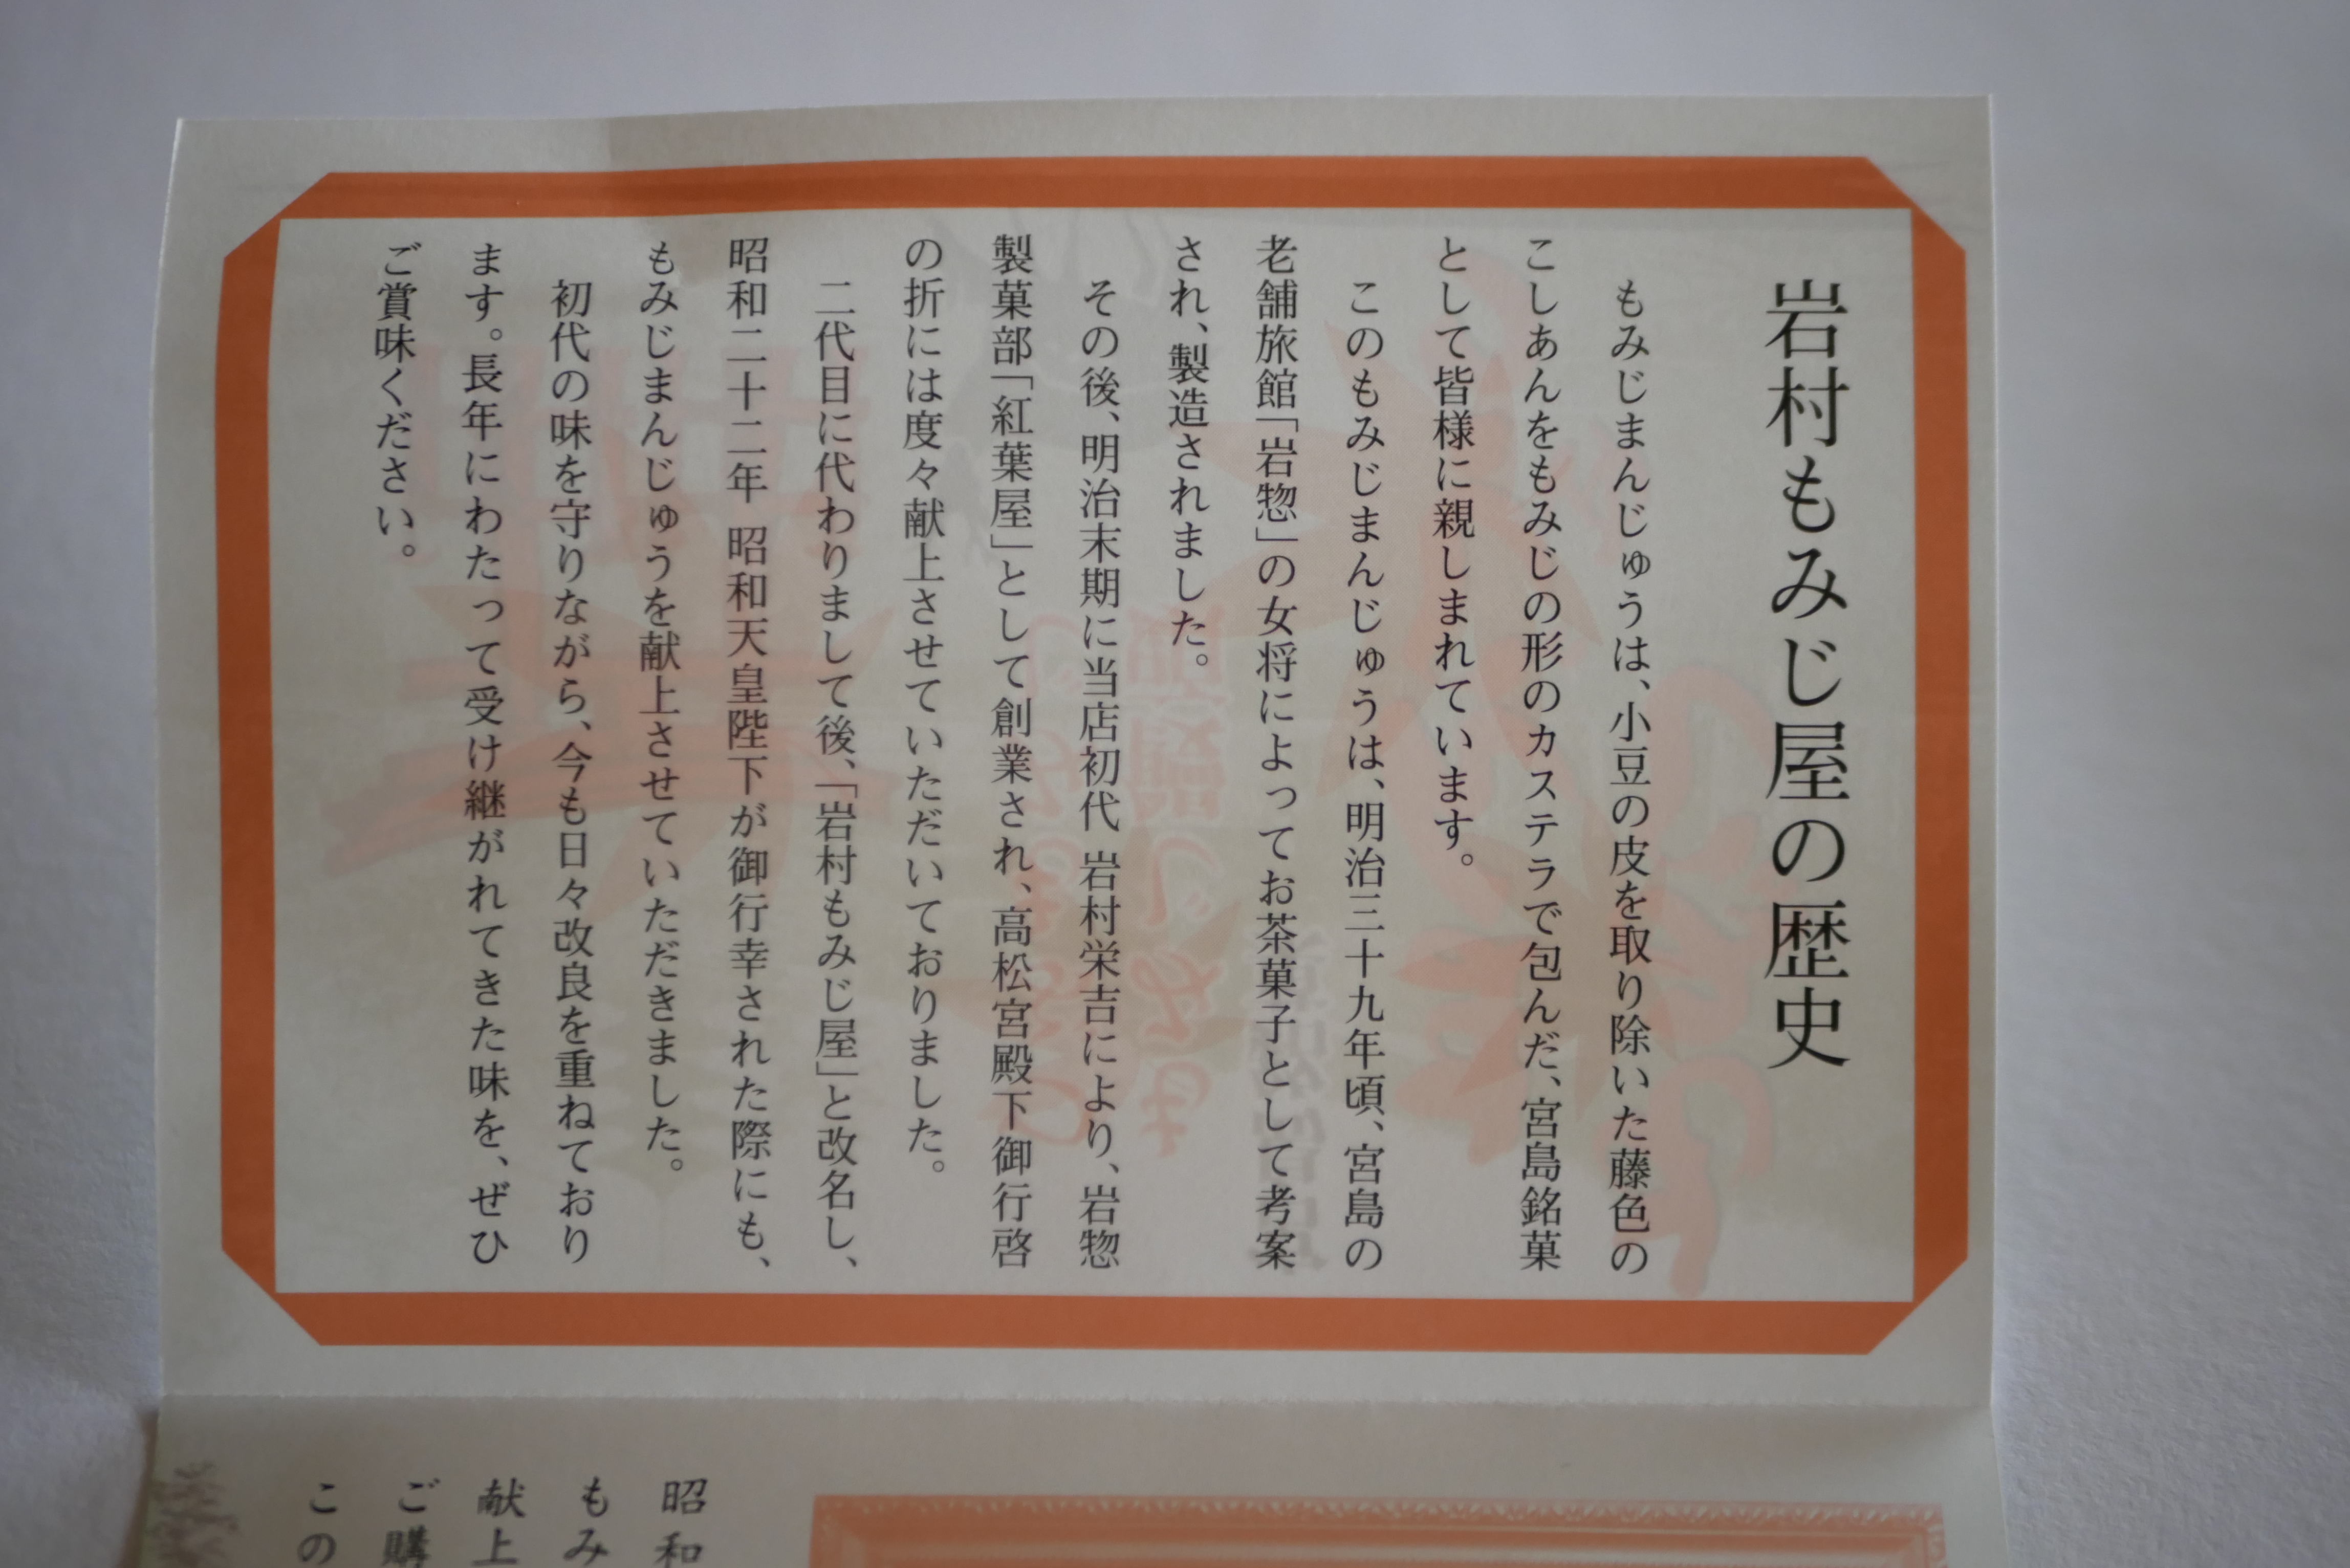 岩村もみじ屋の歴史
もみじまんじゅうは、小豆の皮を取り除いた藤色の
こしあんをもみじの形のカステラで包んだ、宮島銘菓
として皆様に親しまれています。
このもみじまんじゅうは、明治三十九年頃、宮島の
老舗旅館「岩惣」の女将によってお茶菓子として考案
され、製造されました。
その後、明治末期に当店初代 岩村栄吉により、岩惣
製菓部「紅葉屋」として創業され、高松宮殿下御行啓
の折には度々献上させていただいておりました。
二代目に代わりまして後、「岩村もみじ屋」と改名し、
昭和二十二年 昭和天皇陛下が御行幸された際にも、
もみじまんじゅうを献上させていただきました。
初代の味を守りながら、今も日々改良を重ねており
ます。長年にわたって受け継がれてきた味を、ぜひ
ご賞味ください。
昭和
もみ
献上
ご購
この